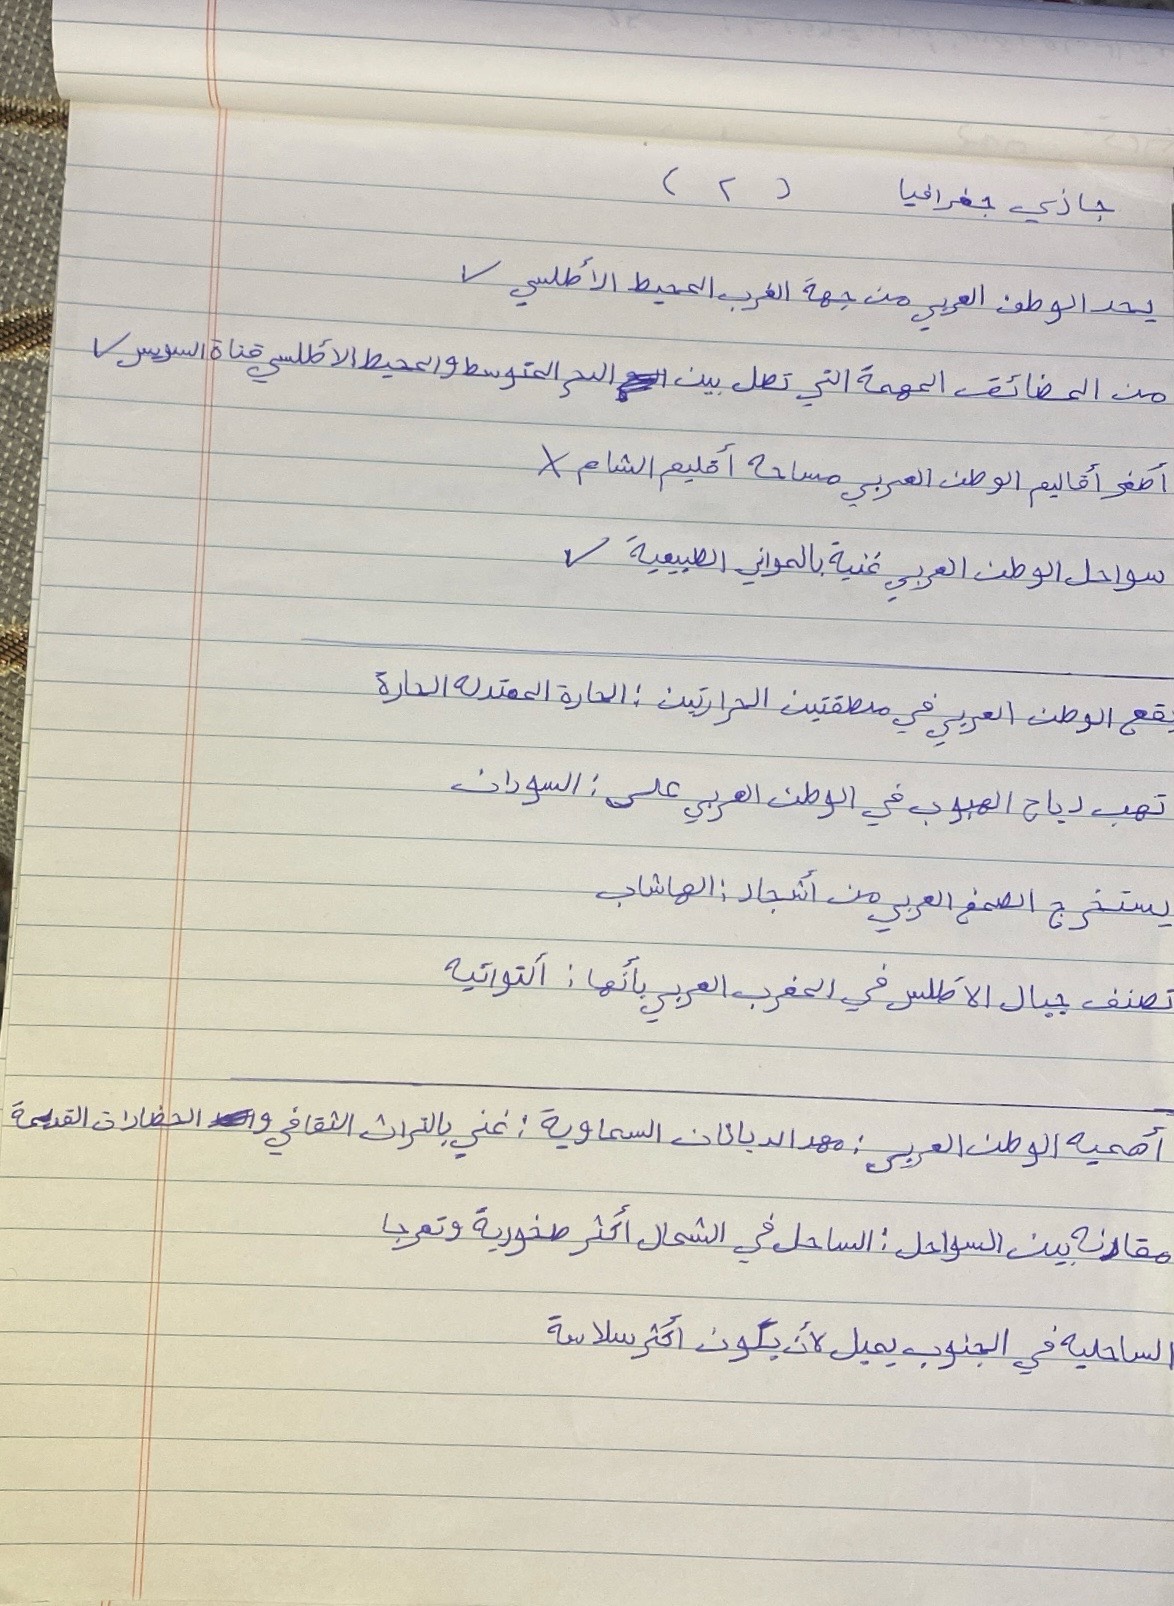 جاذي جغرافيا ( ٢ )
يحد الوطن العربي من جهة الغرب المحيط الأطلسي ✓
من المضائق المهمة التي تصل بين البحر المتوسط والمحيط الأطلسي قناة السويس ✓
أصغر أقاليم الوطن العربي مساحه أقليم الشام X
سواحل الوطن العربي غنية بالمواني الطبيعية ✓
يقع الوطن العربي في منطقتين الحرارتين : الحارة المعتدله الحارة
تهب رياح الهبوب في الوطن العربي على : السودان
يستخرج الصمغ العربي من أشجار : الهاشاب
تصنف جبال الأطلس في المغرب العربي بأنها : ألتواتيه
أهميه الوطن العربي : مهد الديانات السماوية : غني بالتراث الثقافي و الحضارات القديمة
مقارنه بين السواحل : الساحل في الشمال أكثر صخورية وتعرجا
الساحليه في الجنوب يميل لأن يكون أكثر سلاسة